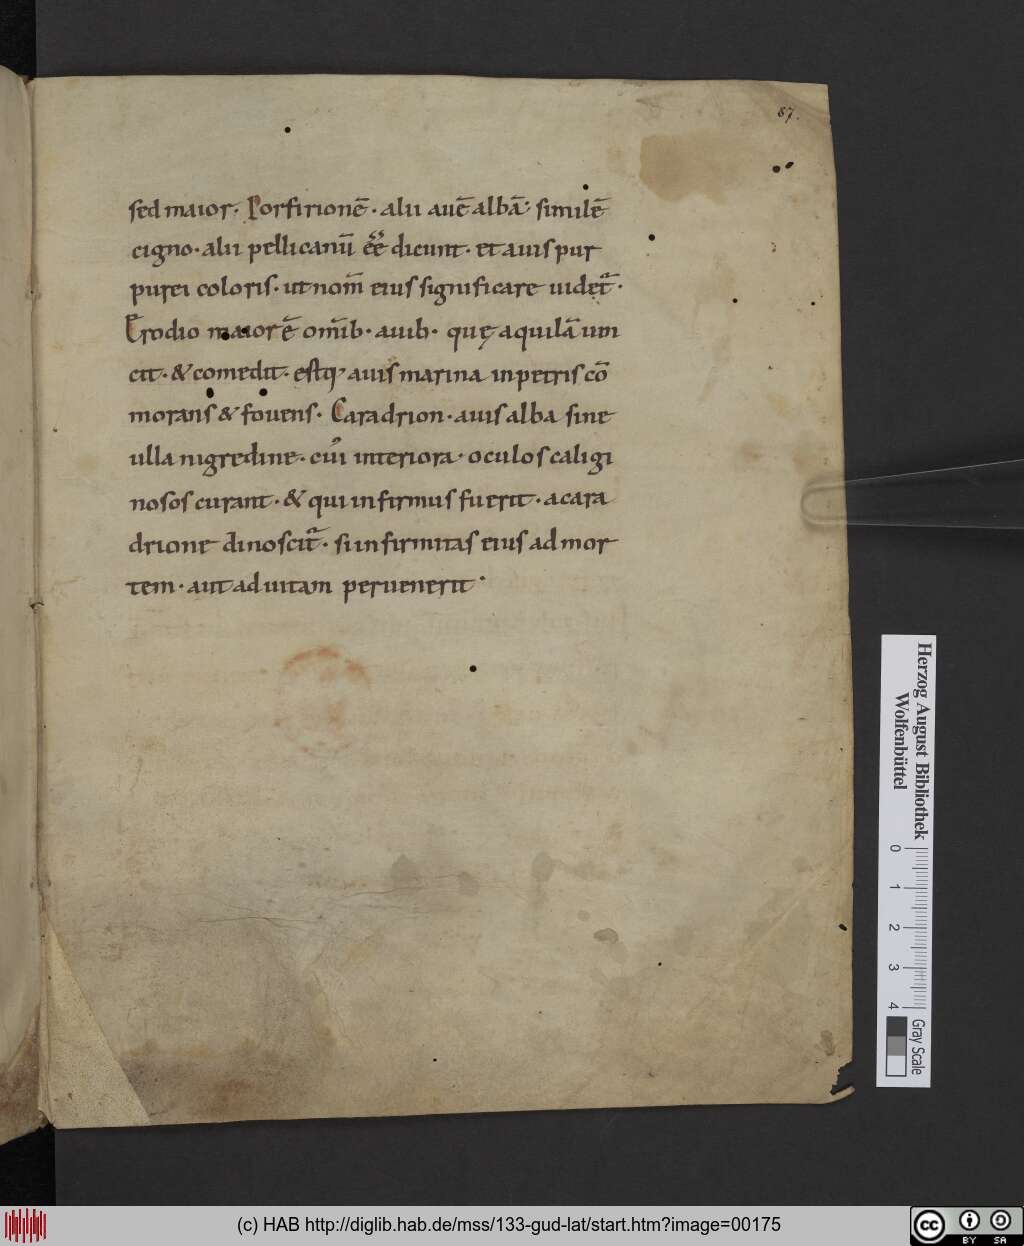 87.
sed maior. Porfirionē. alii auē albā. similē
cigno. alii pellicanū ēē dicunt. et auis pur
purei coloris. ut nom̄ eius significare uidet̄.
Erodio maiorē om̄ib. auib. quę aquilā uin
cit. & comedit. estq; auis marina in petris cō
morans & fouens. Caradrion. auis alba sine
ulla nigredine. cui᾽ interiora. oculos caligi
nosos curant. & qui infirmus fuerit. a cara
drione dinoscit̄. si infirmitas eius ad mor
tem. aut ad uitam peruenerit.
Herzog August Bibliothek
Wolfenbüttel
0 1 2 3 4
Gray Scale
(c) HAB http://diglib.hab.de/mss/133-gud-lat/start.htm?image=00175
cc BY SA